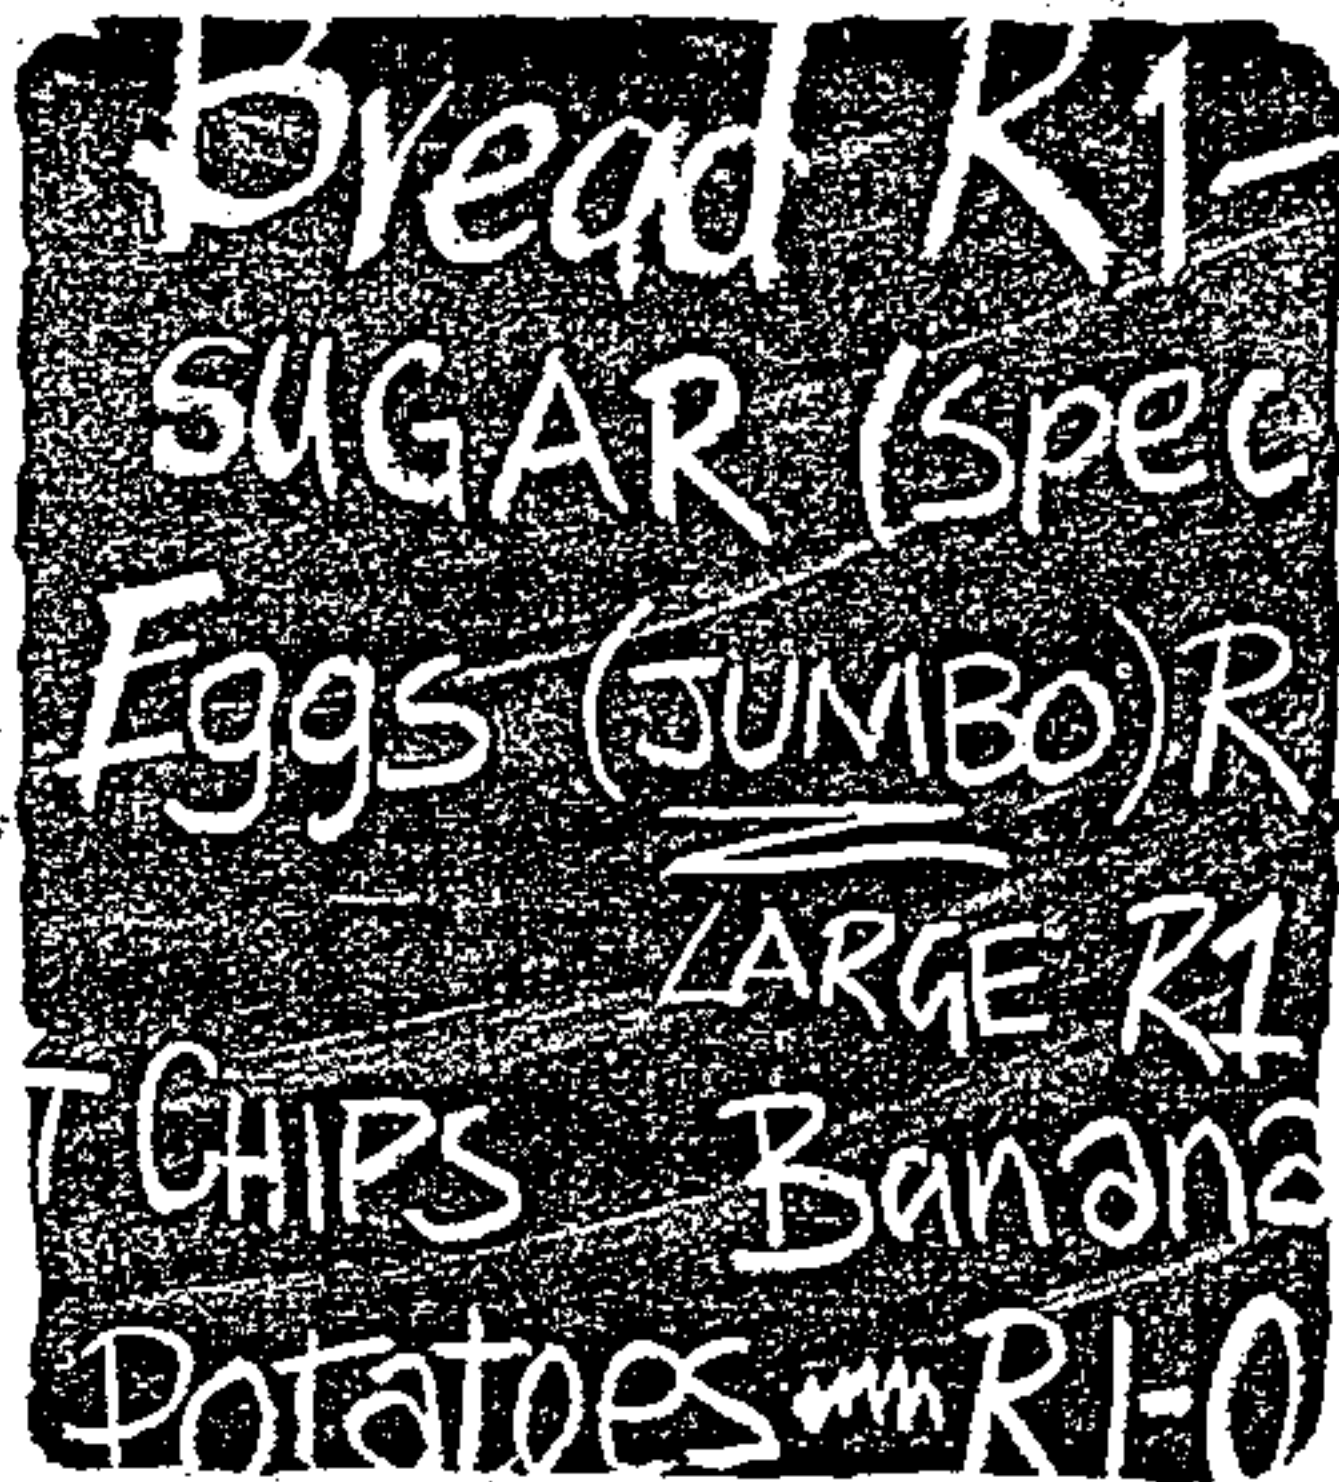 Bread R1-
SUGAR (Spec
Eggs (JUMBO) R
LARGE R1
T CHIPS Banana
Potatoes R1-0